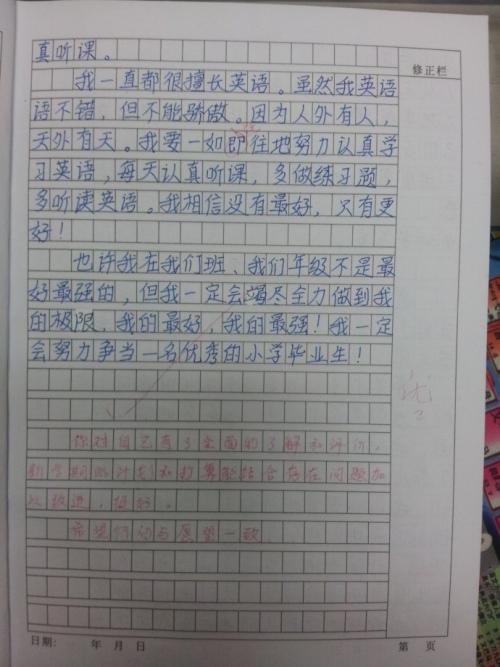 真听课。
修正栏
我一直都很擅长英语。虽然我英语
语不错，但不能骄傲。因为人外有人，
天外有天。我要一如即往地努力认真学
习英语，每天认真听课，多做练习题，
多听读英语。我相信没有最好，只有更
好！
也许我在我们班、我们年级不是最
好最强的，但我一定会竭尽全力做到我
的极限，我的最好，我的最强！我一定
会努力争当一名优秀的小学毕业生！
优
你对自己有了全面的了解和评价，
新学期的计划和打算能结合存在问题加
以改进，很好。
希望行动与愿望一致。
日期： 年 月 日
第 页